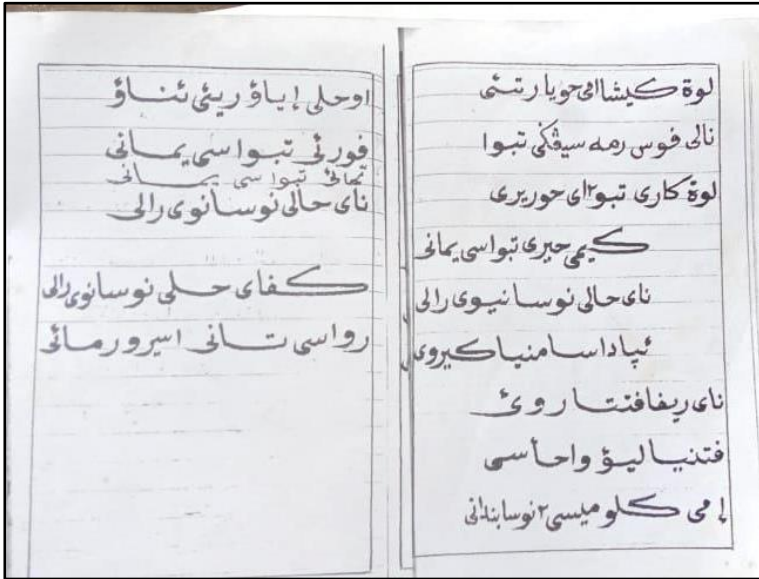 لوة كيشاامى حويا رتنئى
نالى فوس رمه سيڤكى تبوا
لوة كارى تبو٢اى حوريرى
كيمى حيرى تبواسى يمانى
ناى حالى نوسانيوى رالى
ئپاداسا منپاكيروى
ناى ريفافنتا روئ
فتدنياليؤ واحأسى
إمى كلو ميسى٢نوسابندانى
اوحلى إباؤ ريئى ئناؤ
فورنى تبواسى يمانى
تمانى تبوا سى يمانى
ناى حالى نوسانوى رالى
كفاى حلى نوسانوى رالى
رواسى تانى اسرورمائى